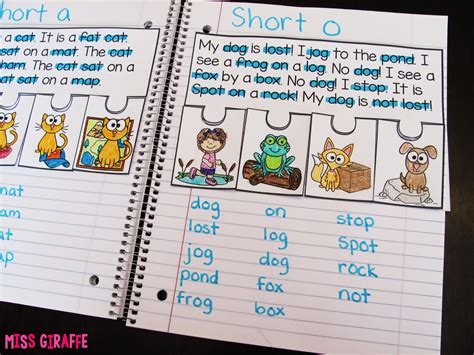 hort a
a cat. It is a fat cat.
sat on a mat. The cat
ham. The cat sat on a
cat sat on a map.
nat
am
at
ap
Short o
My dog is lost! I jog to the pond. I
see a frog on a log. No dog! I see a
fox by a box. No dog! I stop. It is
Spot on a rock! My dog is not lost!
dog on stop
lost log spot
jog dog rock
pond fox not
frog box
MISS GIRAFFE